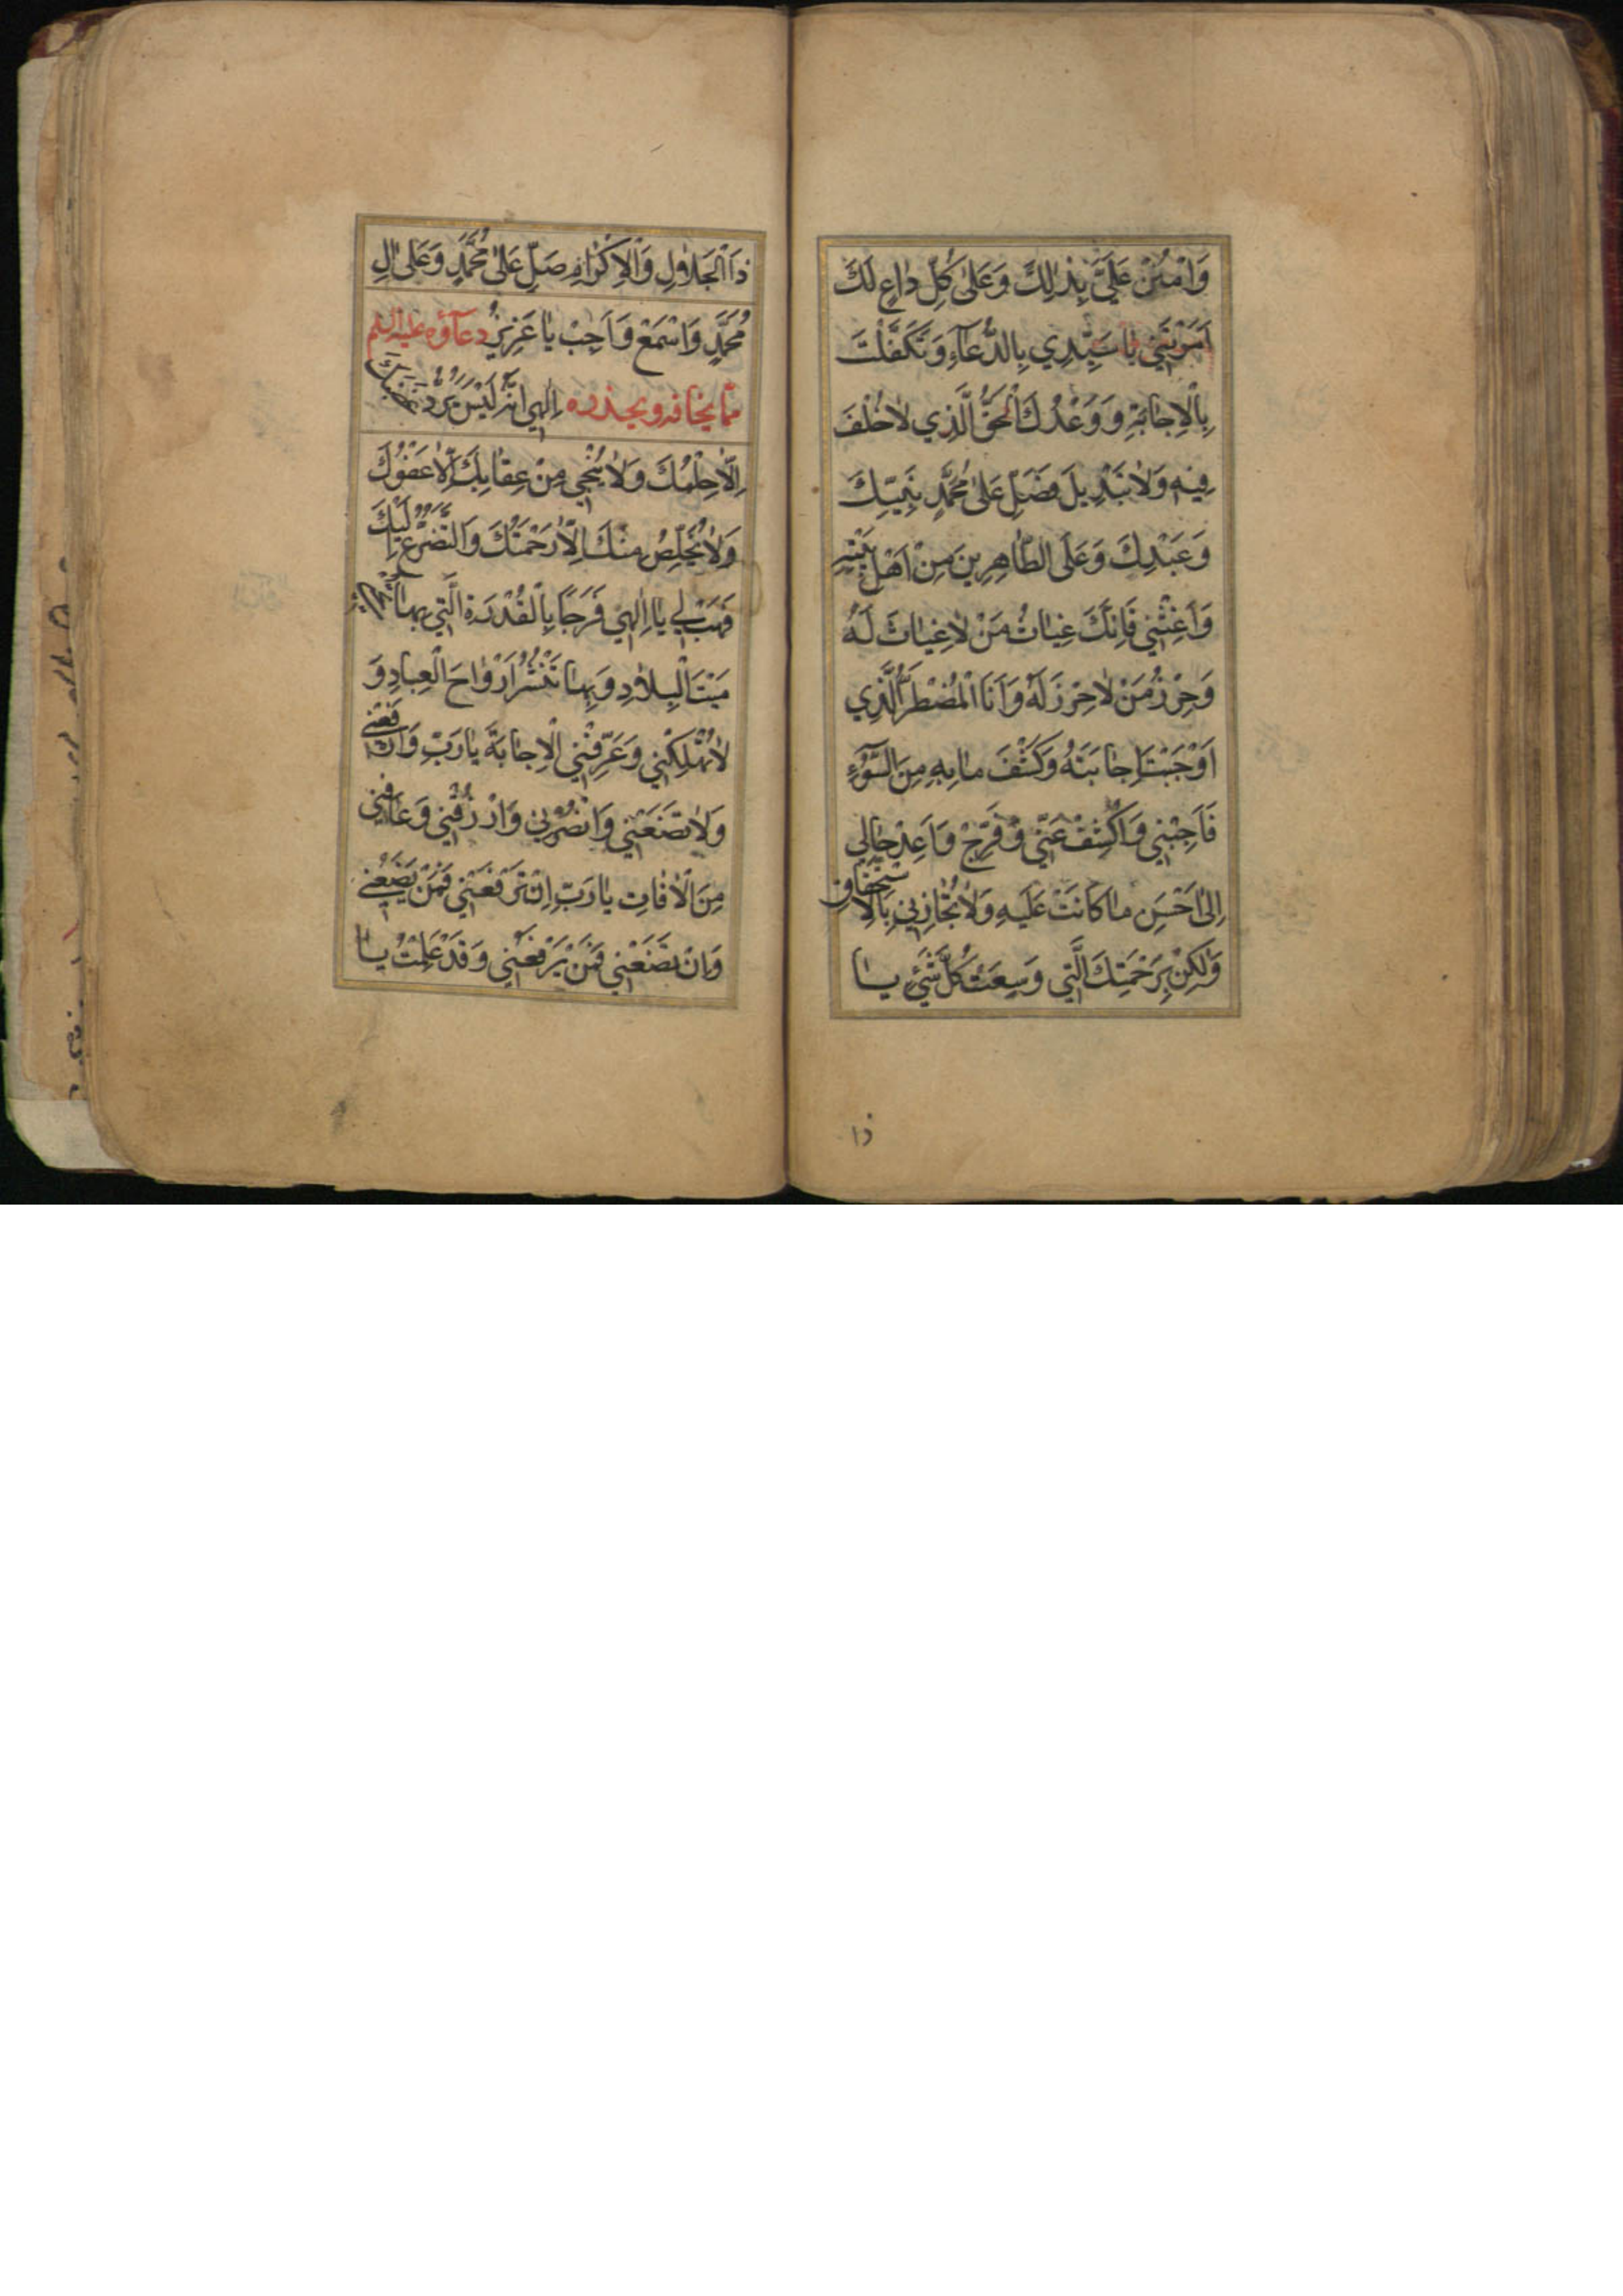 وَامْنُنْ عَلَيَّ بِذٰلِكَ وَعَلىٰ كُلِّ دٰاعٍ لَكَ
اَمَرْتَنِي يٰا سَيِّدِي بِالدُّعَآءِ وَتَكَفَّلْتَ
بِالْاِجٰابَةِ وَوَعْدُكَ الْحَقُّ الَّذِي لٰا خُلْفَ
فِيهِ وَلٰا تَبْدِيلَ فَصَلِّ عَلىٰ مُحَمَّدٍ نَبِيِّكَ
وَعَبْدِكَ وَعَلَى الطّٰاهِرِينَ مِنْ اَهْلِ بَيْتِهِ
وَاَغِثْنِي فَاِنَّكَ غِيٰاثُ مَنْ لٰا غِيٰاثَ لَهُ
وَحِرْزُ مَنْ لٰا حِرْزَ لَهُ وَاَنَا الْمُضْطَرُّ الَّذِي
اَوْجَبْتَ اِجٰابَتَهُ وَكَشْفَ مٰا بِهِ مِنَ السُّوٓءِ
فَاَجِبْنِي وَاكْشِفْ عَنِّي وَفَرِّجْ وَاَعِدْ حٰالِي
اِلىٰ اَحْسَنِ مٰا كٰانَتْ عَلَيْهِ وَلٰا تُجٰازِنِي بِالْاِسْتِحْقٰاقِ
وَلٰكِنْ بِرَحْمَتِكَ الَّتِي وَسِعَتْ كُلَّ شَيْءٍ يٰا
ذا
ذَا الْجَلٰالِ وَالْاِكْرٰامِ صَلِّ عَلىٰ مُحَمَّدٍ وَعَلىٰ اٰلِ
مُحَمَّدٍ وَاسْمَعْ وَاَجِبْ يٰا عَزِيزُ دعآؤه عليه السلم
مما يخافه ويحذره اِلٰهِي اِنَّهُ لَيْسَ يَرُدُّ غَضَبَكَ
اِلّٰا حِلْمُكَ وَلٰا يُنْجِي مِنْ عِقٰابِكَ اِلّٰا عَفْوُكَ
وَلٰا يُخَلِّصُ مِنْكَ اِلّٰا رَحْمَتُكَ وَالتَّضَرُّعُ اِلَيْكَ
فَهَبْ لِي يٰا اِلٰهِي فَرَجًا بِالْقُدْرَةِ الَّتِي بِهٰا تُحْيِي
مَيْتَ الْبِلٰادِ وَبِهٰا تَنْشُرُ اَرْوٰاحَ الْعِبٰادِ وَ
لٰا تُهْلِكْنِي وَعَرِّفْنِي الْاِجٰابَةَ يٰا رَبِّ وَارْفَعْنِي
وَلٰا تَضَعْنِي وَانْصُرْنِي وَارْزُقْنِي وَعٰافِنِي
مِنَ الْاٰفٰاتِ يٰا رَبِّ اِنْ تَرْفَعْنِي فَمَنْ يَضَعُنِي
وَاِنْ تَضَعْنِي فَمَنْ يَرْفَعُنِي وَقَدْ عَلِمْتُ يٰا